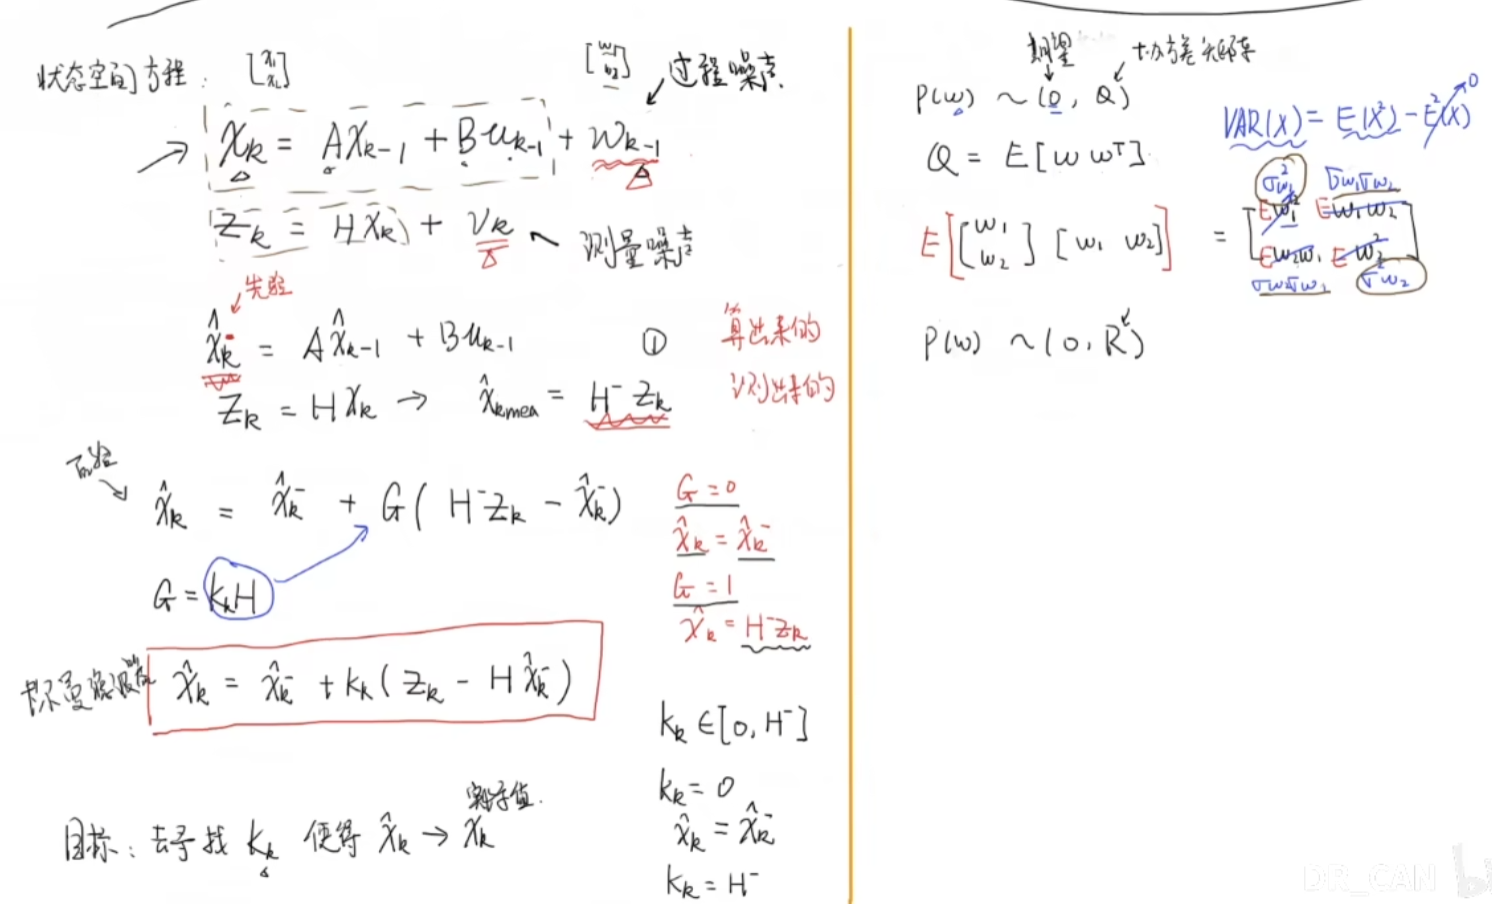 状态空间方程: [x₁ x₂]
[w₁ w₂] 过程噪声
X_k = AX_{k-1} + BU_{k-1} + W_{k-1}
Z_k = HX_k + V_k 测量噪声
先验
x̂_k⁻ = Ax̂_{k-1} + BU_{k-1} ① 算出来的
Z_k = HX_k → x̂_{kmea} = H⁻Z_k 测出来的
后验
x̂_k = x̂_k⁻ + G(H⁻Z_k - x̂_k⁻)
G = K_kH
x̂_k = x̂_k⁻ + K_k(Z_k - Hx̂_k⁻)
目标: 去寻找 K_k 使得 x̂_k → X_k
实际值.
G = 0
x̂_k = x̂_k⁻
G = 1
x̂_k = H⁻Z_k
K_k ∈ [0, H⁻]
K_k = 0
x̂_k = x̂_k⁻
K_k = H⁻
期望 协方差矩阵
P(w) ~ (0, Q)
VAR(X) = E(X²) - E²(X) 0
Q = E[w wᵀ]
E[[w₁ w₂] [w₁ w₂]] = [Ew₁² Ew₁w₂
Ew₂w₁ Ew₂²]
σ²w₁ σw₁σw₂
σw₂σw₁ σ²w₂
P(w) ~ (0, R)
DR_CAN